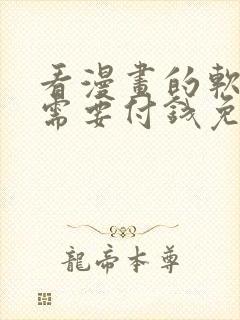 看漫畫的軟
需要付錢免
龍帝本尊